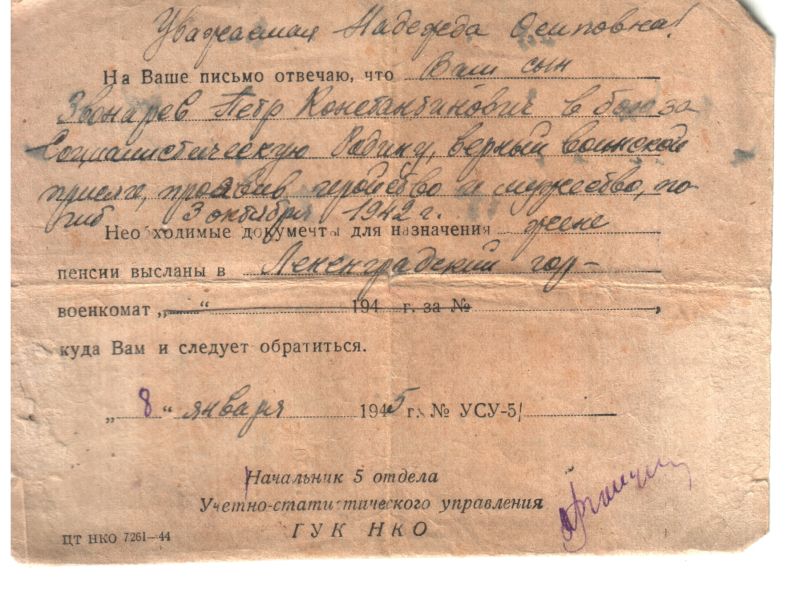 Уважаемая Надежда Осиповна!
На Ваше письмо отвечаю, что Ваш сын
Звонарев Петр Константинович в бою за
Социалистическую Родину, верный воинской
присяге, проявив геройство и мужество, по-
гиб 3 октября 1942 г.
Необходимые документы для назначения жене
пенсии высланы в Ленинградский гор-
военкомат „ “ 194 г. за № ,
куда Вам и следует обратиться.
„ 8 “ января 1945 г. № УСУ-5/
Начальник 5 отдела
Учетно-статистического управления
ГУК НКО
ЦТ НКО 7261—44